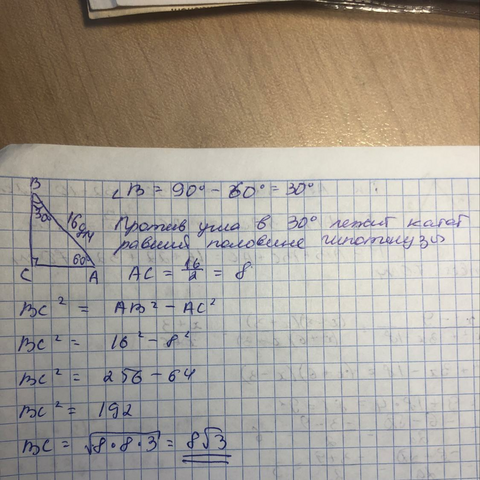 B
30°
16 дм
60°
C
A
∠B = 90° - 60° = 30°
Против угла в 30° лежит катет
равний половине гипотинузы
AC = 16/2 = 8
BC² = AB² - AC²
BC² = 16² - 8²
BC² = 256 - 64
BC² = 192
BC = √8·8·3 = 8√3